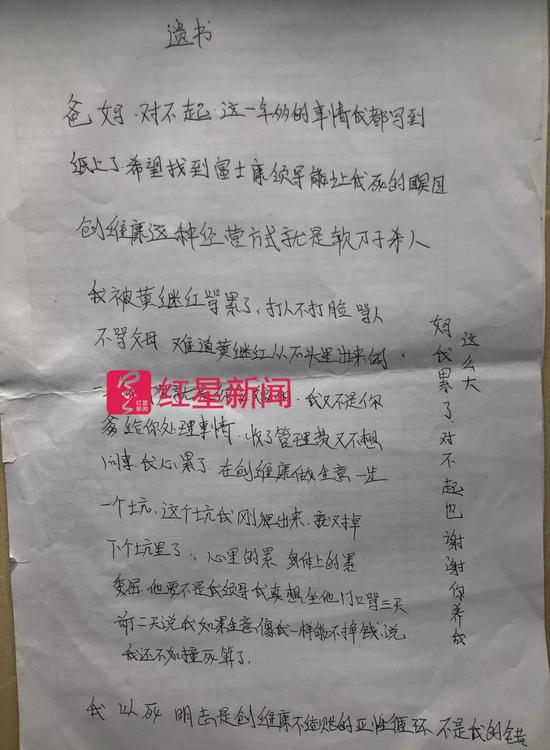 遗书
爸妈.对不起.这一年多的事情我都写到
纸上了.希望找到富士康领导能让我死的瞑目
创维康这种经营方式就是软刀子杀人
我被黄继红骂累了,打人不打脸 骂人
不骂父母 难道黄继红从石头里出来的.
红星新闻
红星新闻
我又不是你
爹给你处理事情.收了管理费又不想
问事 我心累了 在创维康做生意一步
一个坑,这个坑我刚爬出来.就又掉
下个坑里了、心里的累 身体上的累
委屈.他要不是我领导我真想坐他门口骂三天
前二天说我如果生意像我一样能不掉钱.说
我还不如撞死算了.
我以死明志是创维康不结账的恶性循环.不是我的错
妈我累了.对不起也谢谢你养我
这么大